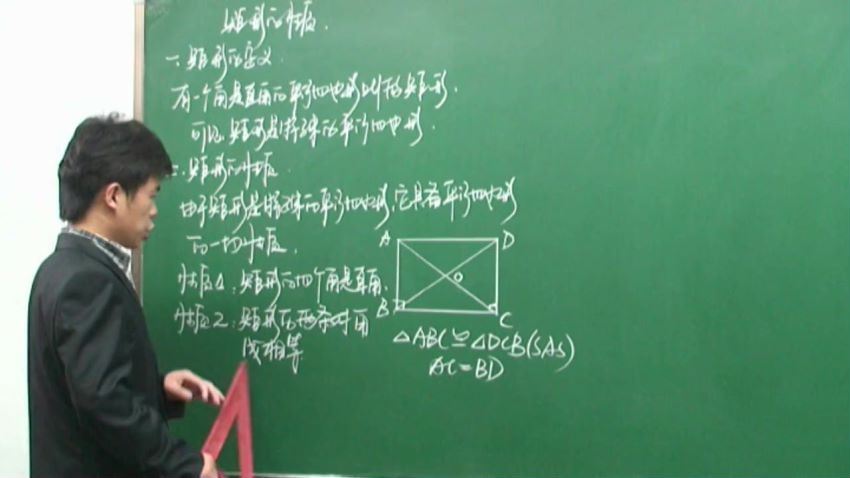 矩形的性质.
一、矩形的定义.
有一个角是直角的平行四边形叫做矩形.
可见矩形是特殊的平行四边形.
二、矩形的性质
由于矩形是特殊的平行四边形,它具有平行四边形
的一切性质.
性质1:矩形的四个角是直角.
性质2:矩形的两条对角
线相等
A D
O
B C
△ABC≌△DCB(SAS)
AC=BD